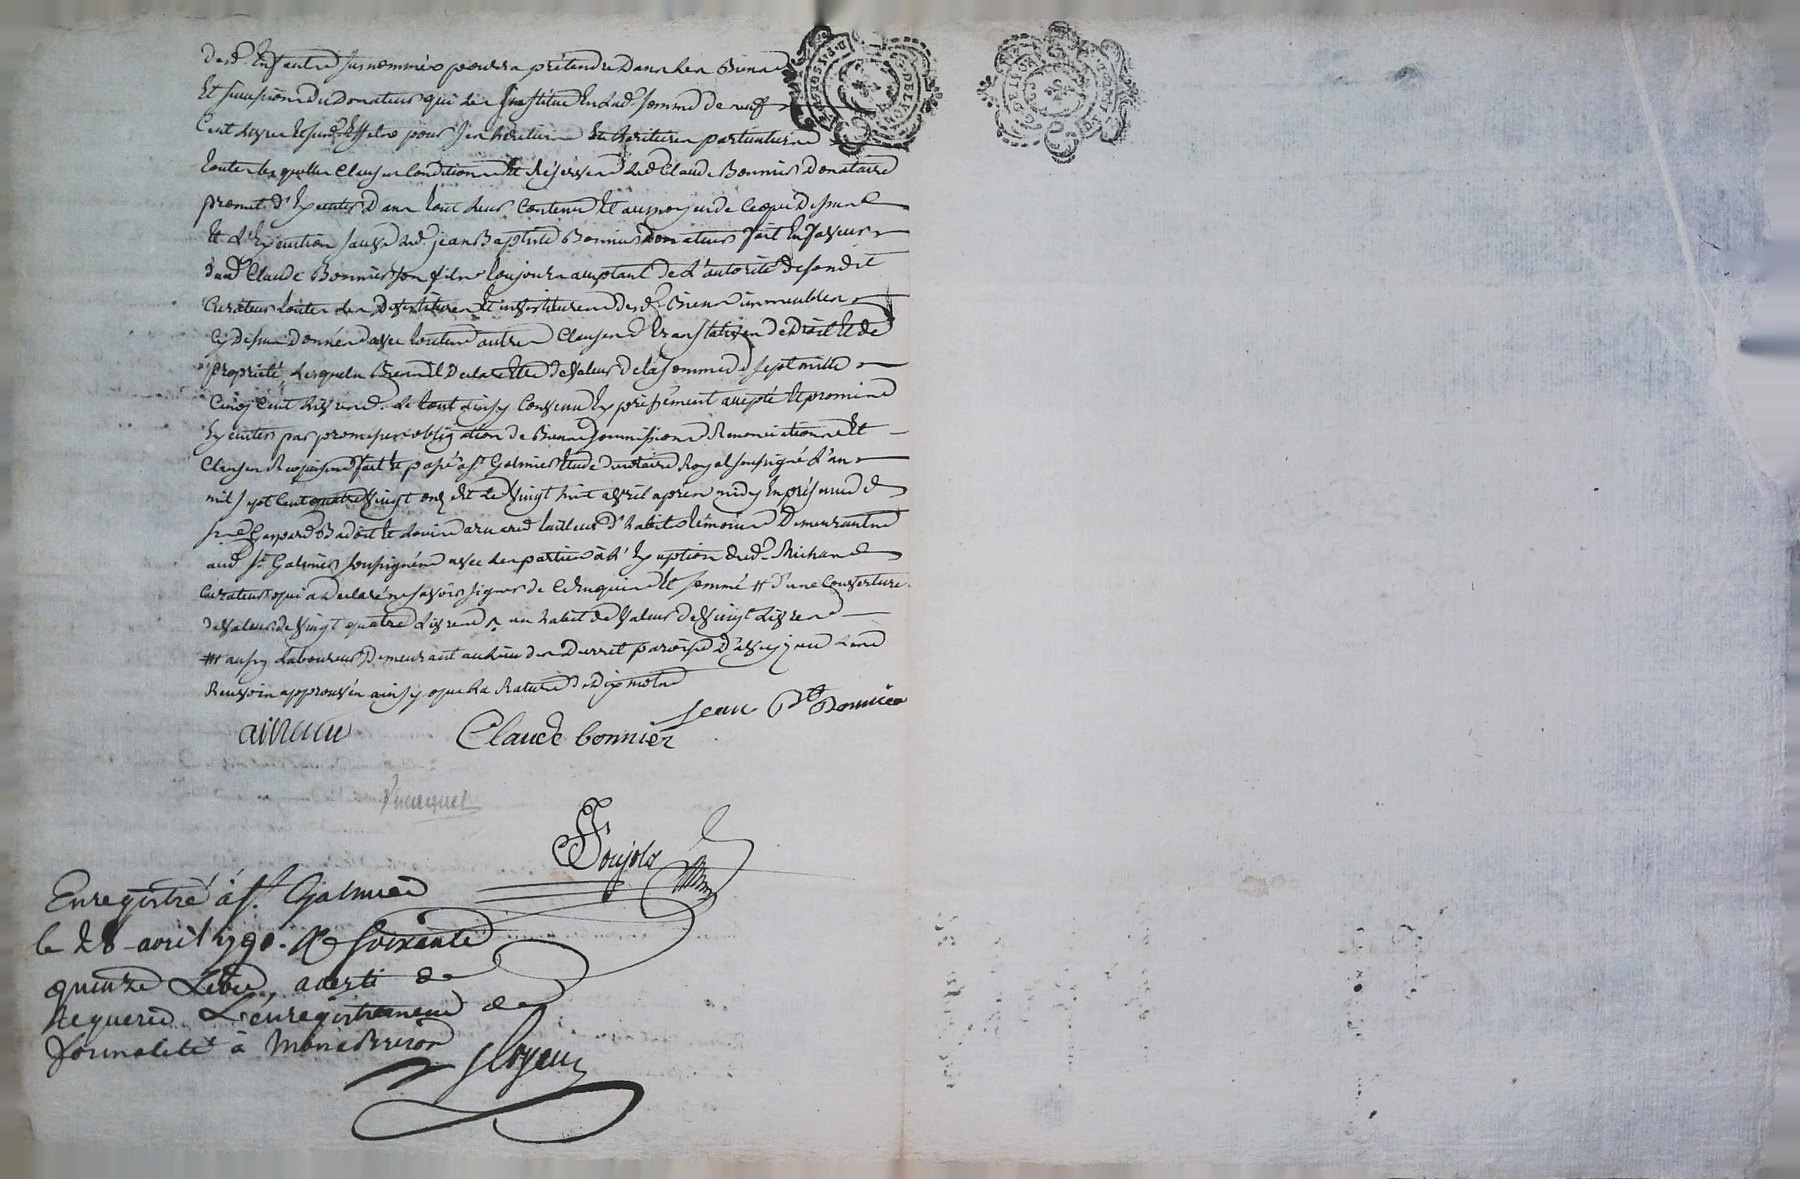 desd. Enfants susnommés pourra prétendre dans les Biens
Et succession du Donateur qui les Institue En lad. somme de neuf
Cent livres Et susd. Effets pour ses héritiers Et héritiers particuliers
toutes lesquelles Clauses Conditions Et réserves led. Claude Bonnier Donataire
promet d'Exécuter Dans tout leur Contenu Et au moyen de Ce que Dessus
Et L'Exécution sauve led. jean Baptiste Bonnier Donateur fait En faveur
dud. Claude Bonnier son fils toujours acceptant De L'autorité de sondit
Curateur toutes les Devestitures Et investitures desd. Biens immeubles
Cy Dessus Donnés avec toutes autres Clauses translatives de Droit Et de
propriété, Lesquels Biens Declarés Etre de valeur de la somme de sept mille
Cinq Cent Livres. Le tout ainsy Convenu Expressément accepté Et promis
Exécuter par promesses obligation de Biens soumissions Renonciations Et
Clauses Requises fait Et passé a St Galmier Etude du notaire Royal soussigné L'an
mil sept Cent quatre vingt onze Et Le vingt huit avril après midy En présence de
Gaspard Badoit Et Louis tailleur d'habits témoins Demeurants
aud. St Galmier soussignés avec les parties à L'Exception dud. Richard
Curateur qui a Declaré ne savoir signer de Ce Enquis Et sommé # d'une Couverture
de valeur de vingt quatre Livres un habit de valeur de vingt Livres
## aussy Laboureur Demeurant au Lieu des paroisse
Renvois approuvés ainsy que La Rature de Dix mots
Jean Bte Bonnier
Claude bonnier
Enregistré à St. Galmier
le 28 avril Rs soixante
quinze averti de
Requerir L'enregistrement de
formalité à Montbrison